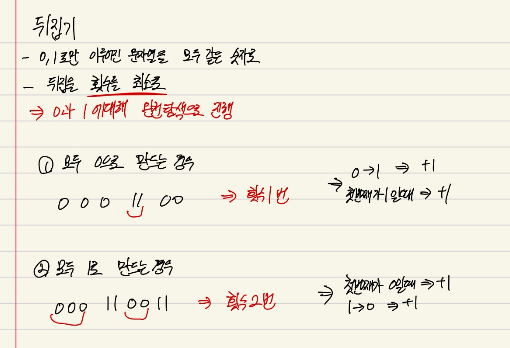 뒤집기
- 0, 1로만 이루어진 문자열을 모두 같은 숫자로
- 뒤집을 횟수를 최소로
⇒ 0과 1에대해 완전탐색으로 진행
① 모두 0으로 만드는 경우
0 0 0 11 00 ⇒ 횟수 1번 ⇒ 0→1 ⇒ +1
첫번째가 1일때 ⇒ +1
② 모두 1로 만드는 경우
000 11 00 11 ⇒ 횟수 2번 ⇒ 첫번째가 0일때 ⇒ +1
1→0 ⇒ +1